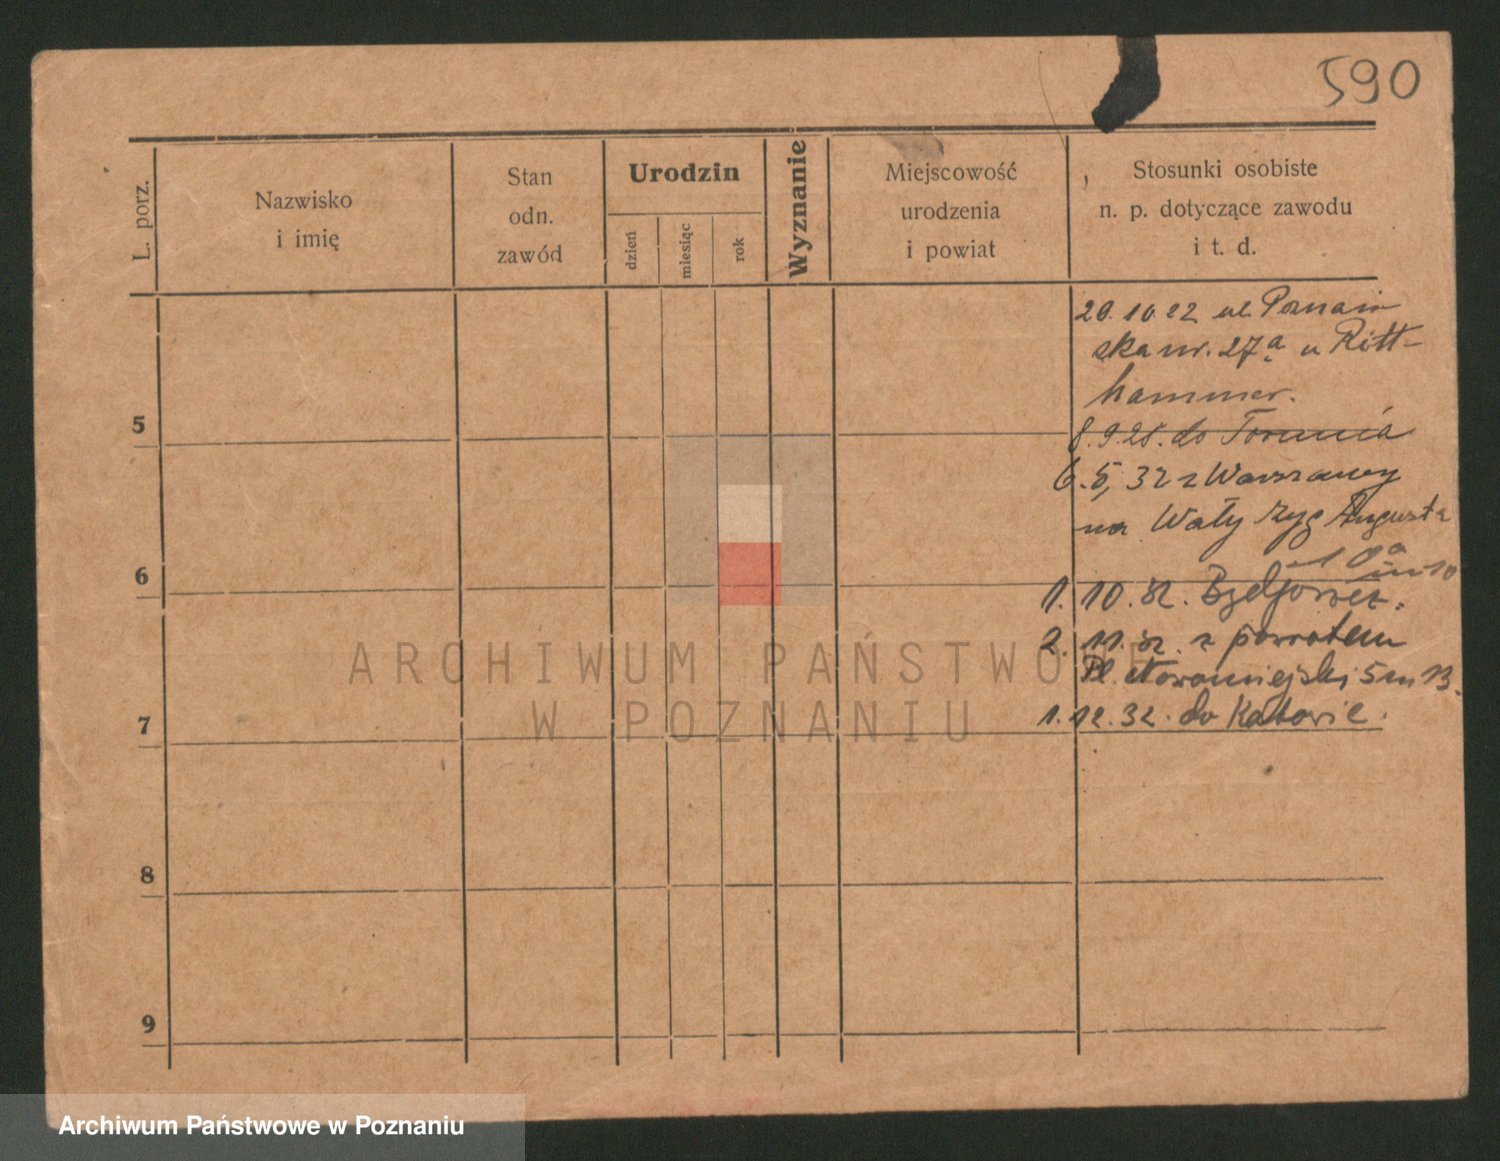 590
L. porz.
Nazwisko
i imię
Stan
odn.
zawód
Urodzin
dzień
miesiąc
rok
Wyznanie
Miejscowość
urodzenia
i powiat
Stosunki osobiste
n. p. dotyczące zawodu
i t. d.
20.10.22 ul. Poznań
ska nr. 27a u Ritt-
hammer.
5
8.9.28. do Torunia
6.5,32 z Warszawy
na Wały Zyg Augusta
10a
6
m 10
1.10.32. Bydgoszcz.
2.11.32. z powrotem
Pl. Nowomiejski 5 m 13.
7
1.12.32. do Katowic.
8
9
ARCHIWUM PAŃSTWOWE
W POZNANIU
Archiwum Państwowe w Poznaniu